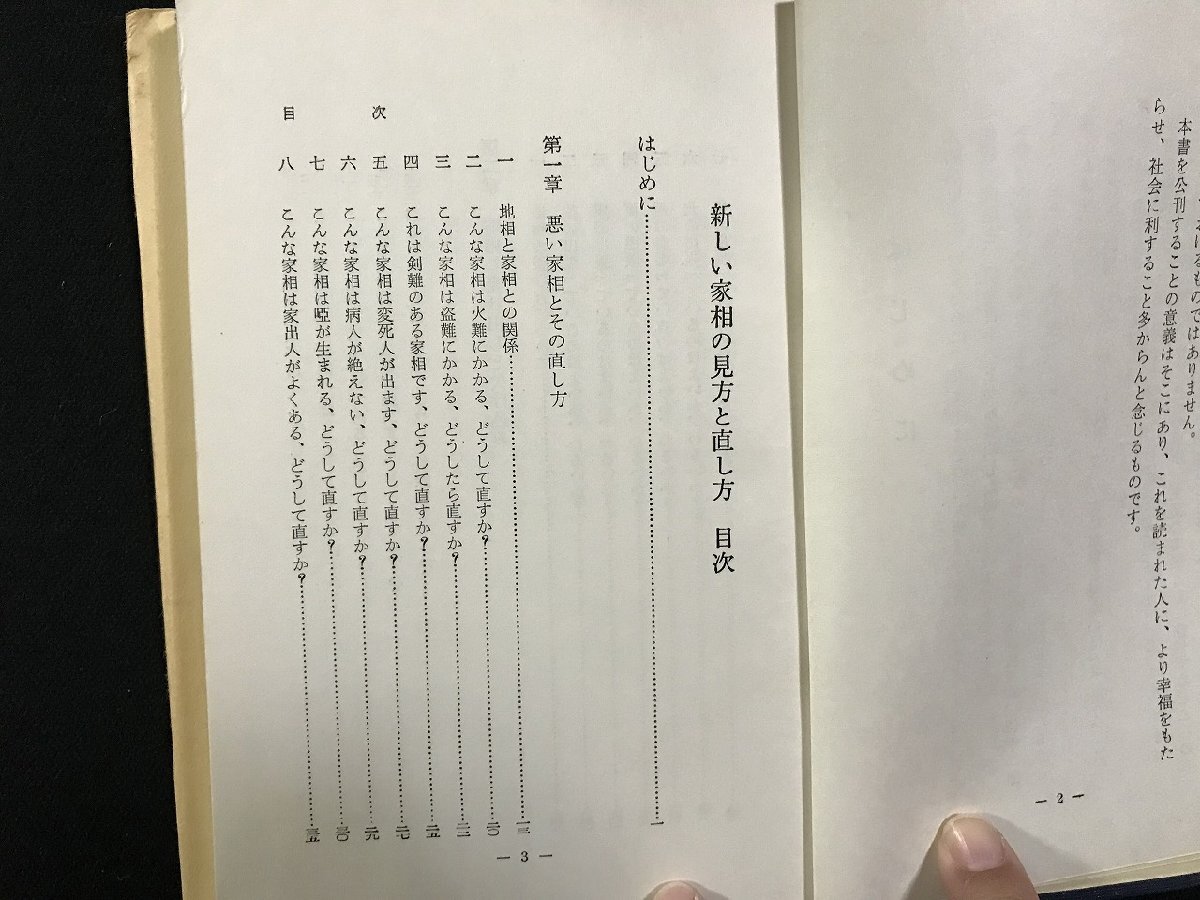 るものではありません。
本書を公刊することの意義はそこにあり、これを読まれた人に、より幸福をもた
らせ、社会に利すること多からんと念じるものです。
— 2 —
新しい家相の見方と直し方　目次
はじめに……………………一
第一章　悪い家相とその直し方
一　地相と家相との関係……………………一三
二　こんな家相は火難にかかる、どうして直すか?……………………二〇
三　こんな家相は盗難にかかる、どうしたら直すか?……………………二二
四　これは剣難のある家相です、どうして直すか?……………………二五
五　こんな家相は変死人が出ます、どうして直すか?……………………二七
六　こんな家相は病人が絶えない、どうして直すか?……………………二九
七　こんな家相は唖が生まれる、どうして直すか?……………………三〇
八　こんな家相は家出人がよくある、どうして直すか?……………………三五
目次
— 3 —